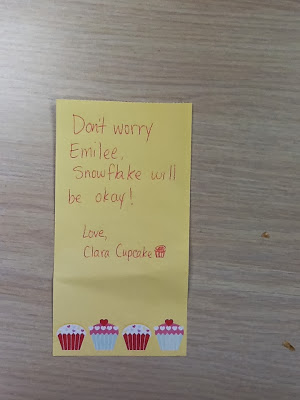 Don't worry
Emilee,
Snowflake will
be okay!
Love,
Clara Cupcake